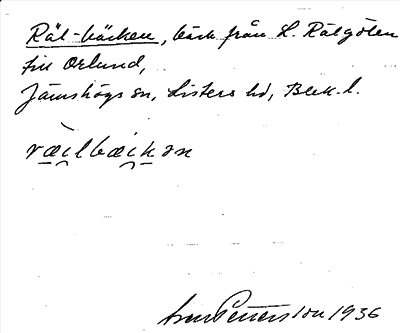 Räl-bäcken, bäck från L. Rälgölen
till Orlund,
Jämshögs sn, Listers hd, Blek. l.
ræilbæikən
Petersson 1936